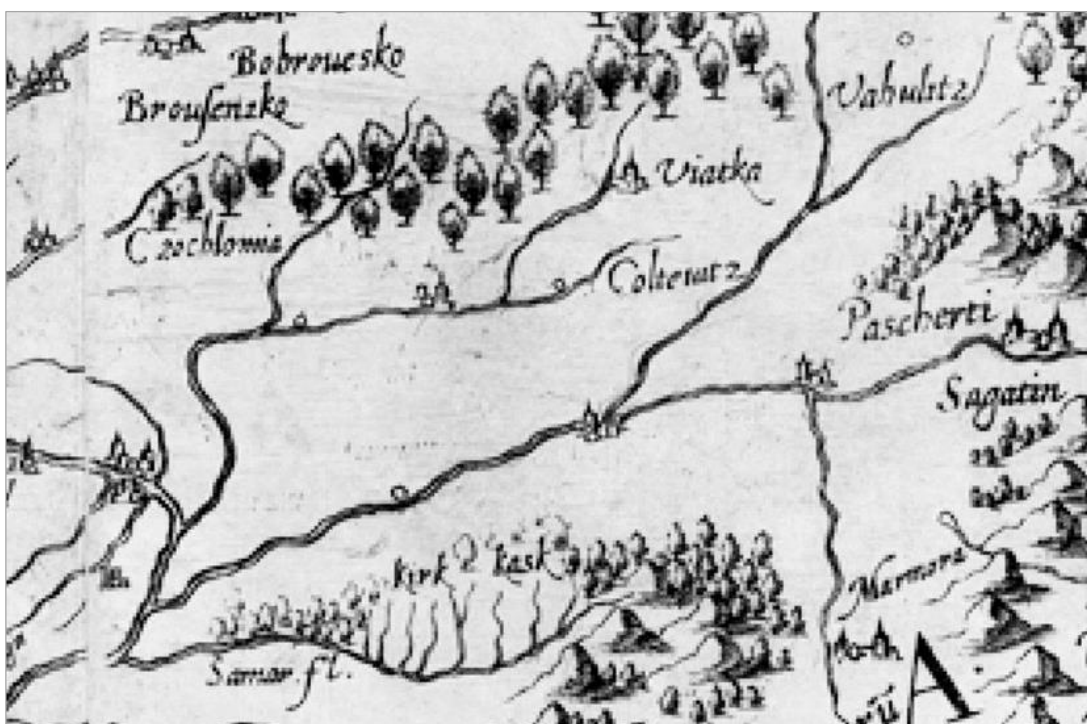 Bobrouesko
Brousenzko
Vahulitz
Viatka
Czochlomia
Colteiatz
Pascherti
Sagatin
kirk kask
Marmora
Samar fl.
A